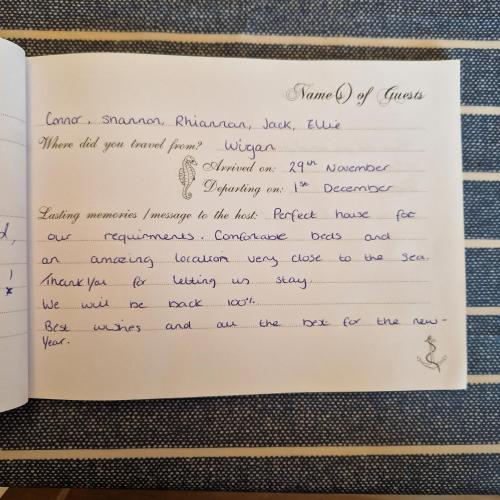 Name(s) of Guests
Connor, Shannon, Rhiannan, Jack, Ellie
Where did you travel from? Wigan
Arrived on: 29th November
Departing on: 1st December
Lasting memories / message to the host: Perfect house for
our requirments. Comfortable beds and
an amazing location very close to the sea.
Thank you for letting us stay.
We will be back 100%.
Best wishes and all the best for the new-
Year.
d,
!
x